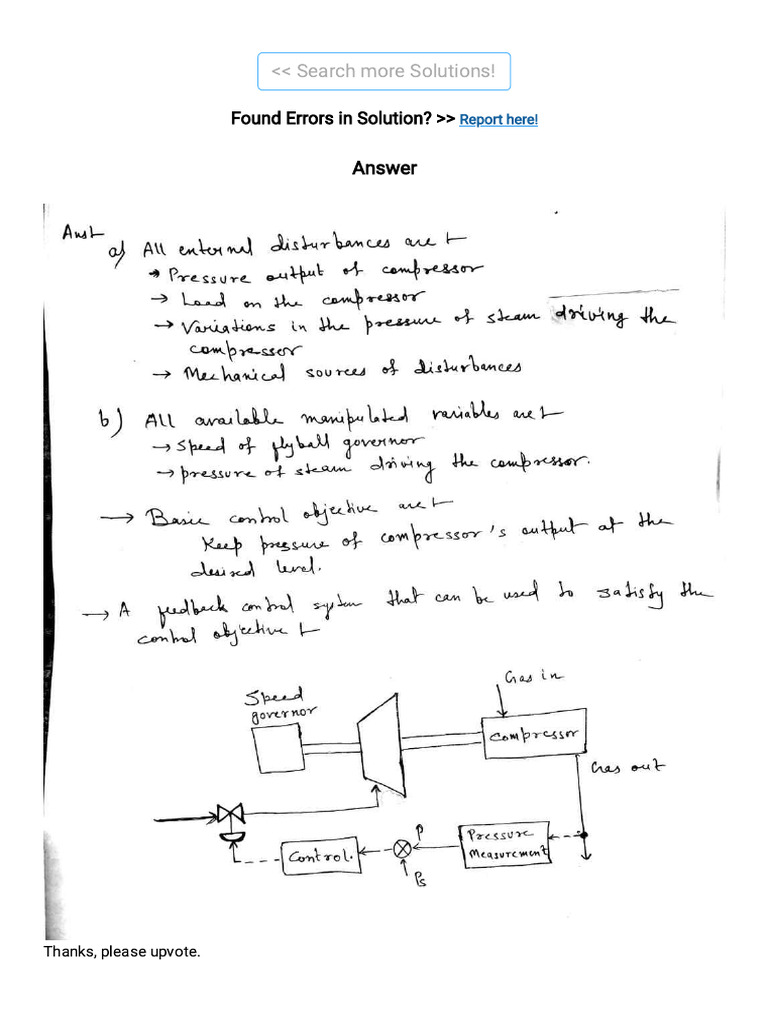 << Search more Solutions!
Found Errors in Solution? >> Report here!
Answer
Ans:-
a) All external disturbances are :-
→ Pressure output of compressor
→ Load on the compressor
→ Variations in the pressure of steam driving the
compressor
→ Mechanical sources of disturbances
b) All available manipulated variables are :-
→ Speed of flyball governor
→ pressure of steam driving the compressor.
→ Basic control objective are :-
Keep pressure of compressor's output at the
desired level.
→ A feedback control system that can be used to satisfy the
control objective :-
Gas in
Speed
governor
Compressor
Gas out
P
Pressure
Measurement
Control.
Ps
Thanks, please upvote.